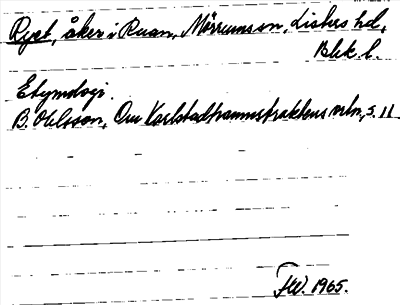 Ryet, åker i Ruan, Mörrums sn, Listers hd,
Blek. l.
Etymologi.
B. Ohlsson, Om Karlshamnstraktens ortn., s. 11
FW. 1965.